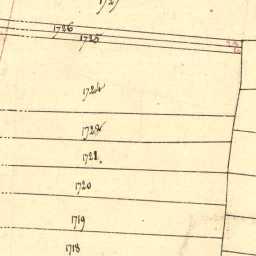 1727
1726
1725
1724
1722
1721
1720
1719
1718